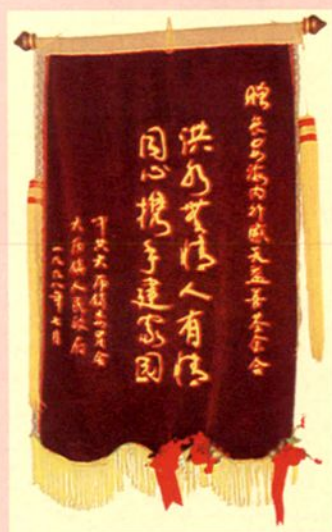 海内外善基金会
洪水無情人有情
同心携手建家园
中共大镇委员会
大镇人民政府
一九九八年七月